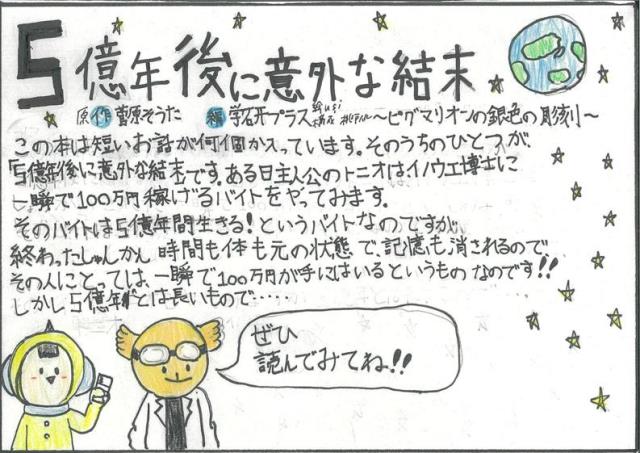 5億年後に意外な結末
原作 菅原そうた 編 学研プラス
～ピグマリオンの銀色の彫刻～
この本は短いお話が何個か入っています。そのうちのひとつが、
「5億年後に意外な結末」です。ある日主人公のトニオはイノウエ博士に
一瞬で100万円稼げるバイトをやってみます。
そのバイトは5億年間生きる!というバイトなのですが、
終わったしゅんかん時間も体も元の状態で、記憶も消されるので…
その人にとっては、一瞬で100万円が手にはいるというものなのです!!
しかし5億年とは長いもので…
ぜひ
読んでみてね!!